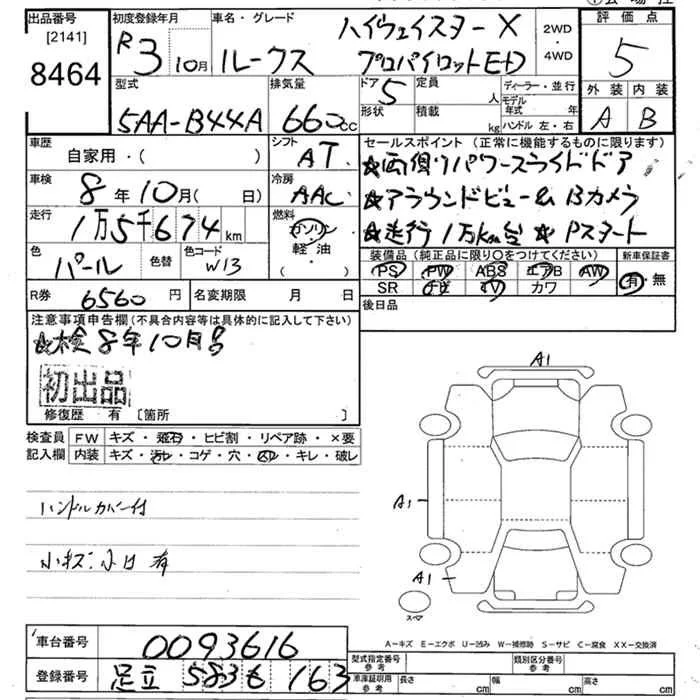 出品番号 初度登録年月 車名・グレード ハイウェイスター X 2WD・4WD 評価点
[2141] R3 10月 ルークス プロパイロットED 5
8464
型式 排気量 ドア 定員 ディーラー・並行 外装 内装
5AA-B44A 660cc 5 人 モデル年式 年 A B
形状 積載 kg ハンドル 左・右
車歴 自家用・( ) シフト AT セールスポイント(正常に機能するものに限ります)
車検 8年10月( 日) 冷房 AAC ★両側パワースライドドア
走行 1万5千674km 燃料 ガソリン・軽油・( ) ★アラウンドビュー&Bカメラ
★走行1万km台 ★Pスタート
色 パール 色替 色コード W13 装備品(純正品に限り○をつけてください) 新車保証書
PS PW ABS エアB AW 有・無
R券 6560円 名変期限 月 日 SR TV カワ
後日品
注意事項申告欄(不具合内容等は具体的に記入して下さい)
★検8年10月号
初出品
修復歴 有 [箇所 ]
検査員 FW キズ・飛石・ヒビ割・リペア跡・×要
記入欄 内装 キズ・汚れ・コゲ・穴・キレ・破レ
ハンドルカバー付
小キズ 小凹 有
A1
A1
A1
スペア
A-キズ E-エクボ U-凹み W-補修跡 S-サビ C-腐食 XX-交換済
車台番号 0093616 型式指定番号 参考 類別区分番号 参考
登録番号 足立 583 も 163 車庫証明用 参考 長さ cm 幅 cm 高さ cm